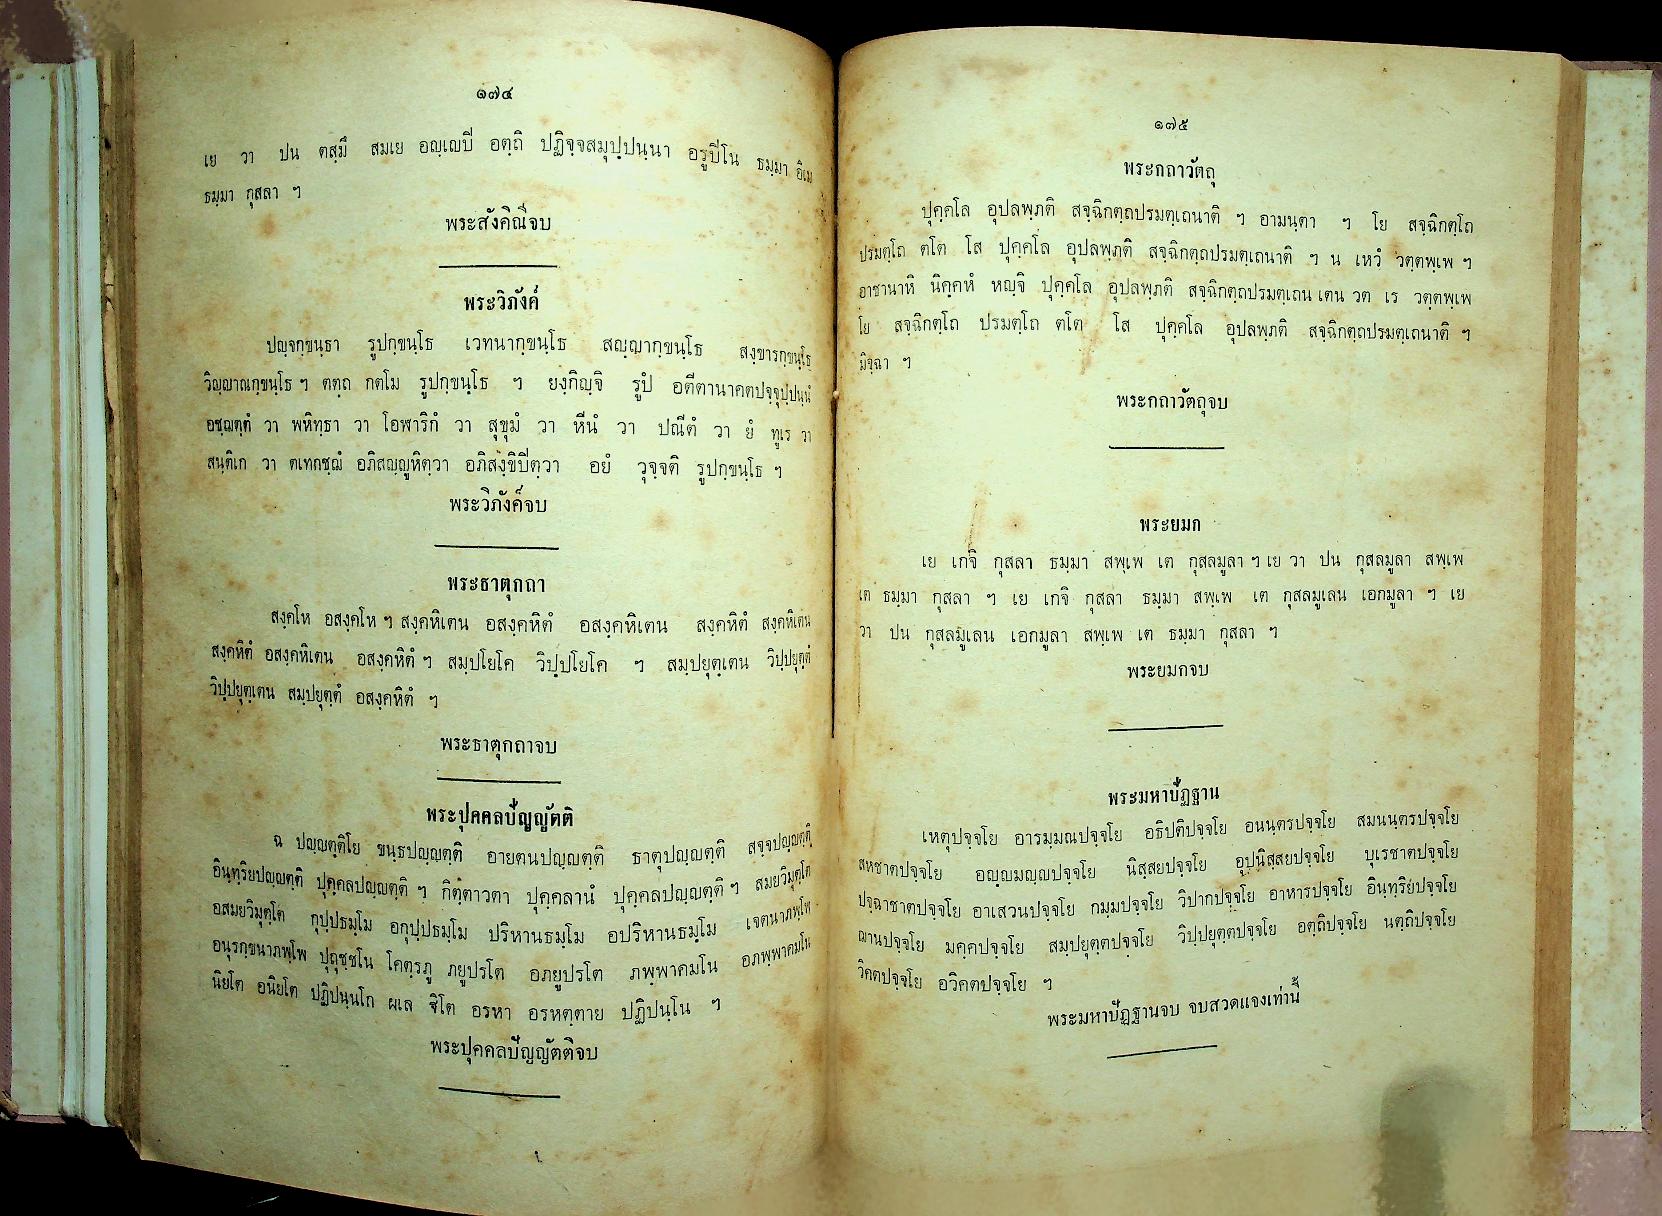 ๑๗๔
เย วา ปน ตสฺมึ สมเย อญฺเญปี อตฺถิ ปฏิจฺจสมุปฺปนฺนา อรูปิโน ธมฺมา อิเม
ธมฺมา กุสลา ฯ
พระสังคิณีจบ
พระวิภังค์
ปญฺจกฺขนฺธา รูปกฺขนฺโธ เวทนากฺขนฺโธ สญฺญากฺขนฺโธ สงฺขารกฺขนฺโธ
วิญฺญาณกฺขนฺโธ ฯ ตตฺถ กตโม รูปกฺขนฺโธ ฯ ยงฺกิญฺจิ รูปํ อตีตานาคตปจฺจุปฺปนฺนํ
อชฺฌตฺตํ วา พหิทฺธา วา โอฬาริกํ วา สุขุมํ วา หีนํ วา ปณีตํ วา ยํ ทูเร วา
สนฺติเก วา ตเทกชฺฌํ อภิสญฺญูหิตฺวา อภิสงฺขิปีตฺวา อยํ วุจฺจติ รูปกฺขนฺโธ ฯ
พระวิภังค์จบ
พระธาตุกถา
สงฺคโห อสงฺคโห ฯ สงฺคหิเตน อสงฺคหิตํ อสงฺคหิเตน สงฺคหิตํ สงฺคหิเตน
สงฺคหิตํ อสงฺคหิเตน อสงฺคหิตํ ฯ สมฺปโยโค วิปฺปโยโค ฯ สมฺปยุตฺเตน วิปฺปยุตฺตํ
วิปฺปยุตฺเตน สมฺปยุตฺตํ อสงฺคหิตํ ฯ
พระธาตุกถาจบ
พระปุคคลบัญญัตติ
ฉ ปญฺญตฺติโย ขนฺธปญฺญตฺติ อายตนปญฺญตฺติ ธาตุปญฺญตฺติ สจฺจปญฺญตฺติ
อินฺทฺริยปญฺญตฺติ ปุคฺคลปญฺญตฺติ ฯ กิตฺตาวตา ปุคฺคลานํ ปุคฺคลปญฺญตฺติ ฯ สมยวิมุตฺโต
อสมยวิมุตฺโต กุปฺปธมฺโม อกุปฺปธมฺโม ปริหานธมฺโม อปริหานธมฺโม เจตนาภพฺโพ
อนุรกฺขนาภพฺโพ ปุถุชฺชโน โคตฺรภู ภยูปรโต อภยูปรโต ภพฺพาคมโน อภพฺพาคมโน
นิยโต อนิยโต ปฏิปนฺนโก ผเล ฐิโต อรหา อรหตฺตาย ปฏิปนฺโน ฯ
พระปุคคลบัญญัตติจบ
๑๗๕
พระกถาวัตถุ
ปุคฺคโล อุปลพฺภติ สจฺฉิกตฺถปรมตฺเถนาติ ฯ อามนฺตา ฯ โย สจฺฉิกตฺโถ
ปรมตฺโถ ตโต โส ปุคฺคโล อุปลพฺภติ สจฺฉิกตฺถปรมตฺเถนาติ ฯ น เหวํ วตฺตพฺเพ ฯ
อาชานาหิ นิคฺคหํ หญฺจิ ปุคฺคโล อุปลพฺภติ สจฺฉิกตฺถปรมตฺเถน เตน วต เร วตฺตพฺเพ
โย สจฺฉิกตฺโถ ปรมตฺโถ ตโต โส ปุคฺคโล อุปลพฺภติ สจฺฉิกตฺถปรมตฺเถนาติ ฯ
มิจฺฉา ฯ
พระกถาวัตถุจบ
พระยมก
เย เกจิ กุสลา ธมฺมา สพฺเพ เต กุสลมูลา ฯ เย วา ปน กุสลมูลา สพฺเพ
เต ธมฺมา กุสลา ฯ เย เกจิ กุสลา ธมฺมา สพฺเพ เต กุสลมูเลน เอกมูลา ฯ เย
วา ปน กุสลมูเลน เอกมูลา สพฺเพ เต ธมฺมา กุสลา ฯ
พระยมกจบ
พระมหาปัฏฐาน
เหตุปจฺจโย อารมฺมณปจฺจโย อธิปติปจฺจโย อนนฺตรปจฺจโย สมนนฺตรปจฺจโย
สหชาตปจฺจโย อญฺญมญฺญปจฺจโย นิสฺสยปจฺจโย อุปนิสฺสยปจฺจโย ปุเรชาตปจฺจโย
ปจฺฉาชาตปจฺจโย อาเสวนปจฺจโย กมฺมปจฺจโย วิปากปจฺจโย อาหารปจฺจโย อินฺทฺริยปจฺจโย
ฌานปจฺจโย มคฺคปจฺจโย สมฺปยุตฺตปจฺจโย วิปฺปยุตฺตปจฺจโย อตฺถิปจฺจโย นตฺถิปจฺจโย
วิคตปจฺจโย อวิคตปจฺจโย ฯ
พระมหาปัฏฐานจบ จบสวดแจงเท่านี้